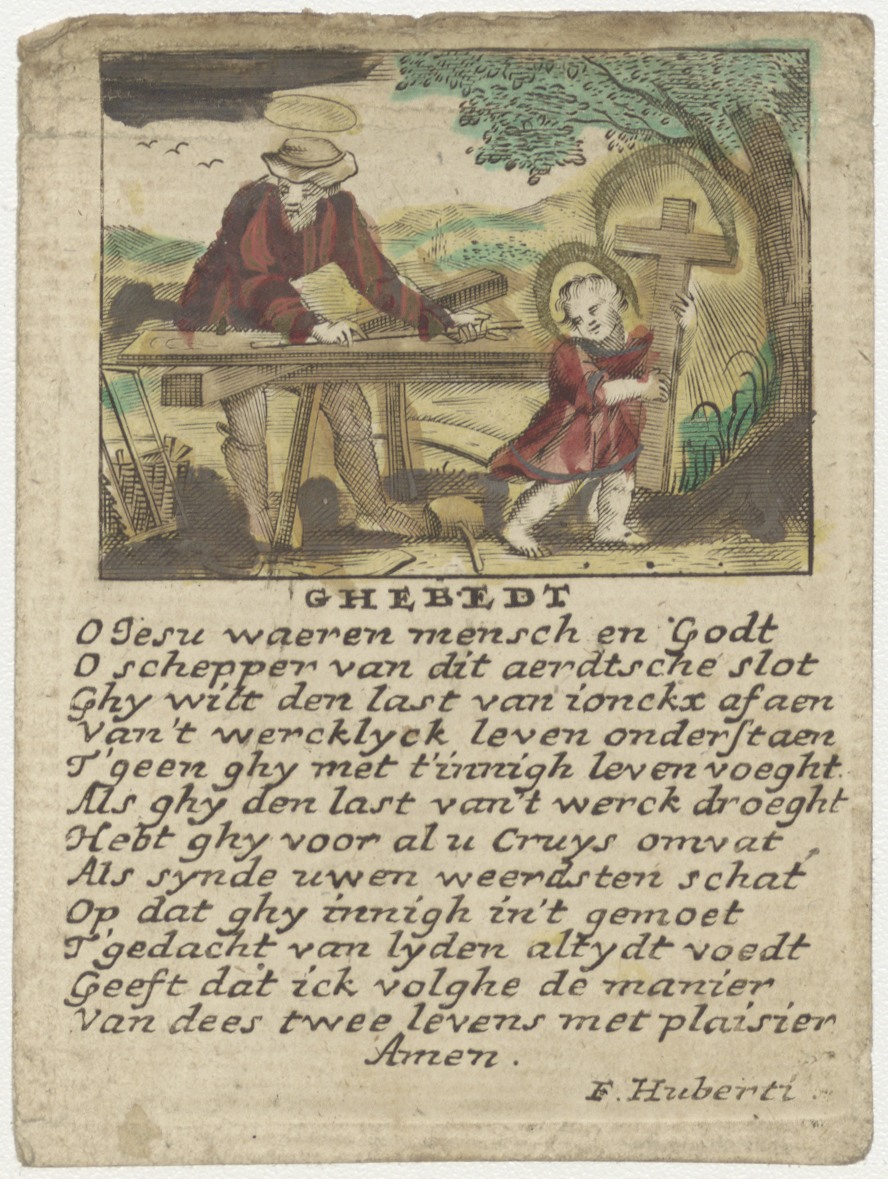 GHEBEDT
O Jesu waeren mensch en Godt
O schepper van dit aerdtsche slot
Ghy wilt den last van ionckx af aen
Van't wercklyck leven onderſtaen
T'geen ghy met t'innigh leven voeght.
Als ghy den last van't werck droeght
Hebt ghy voor al u Cruys omvat,
Als synde uwen weerdsten schat
Op dat ghy innigh in't gemoet
T'gedacht van lyden altydt voedt
Geeft dat ick volghe de manier
Van dees twee levens met plaisier
Amen.
F. Huberti.